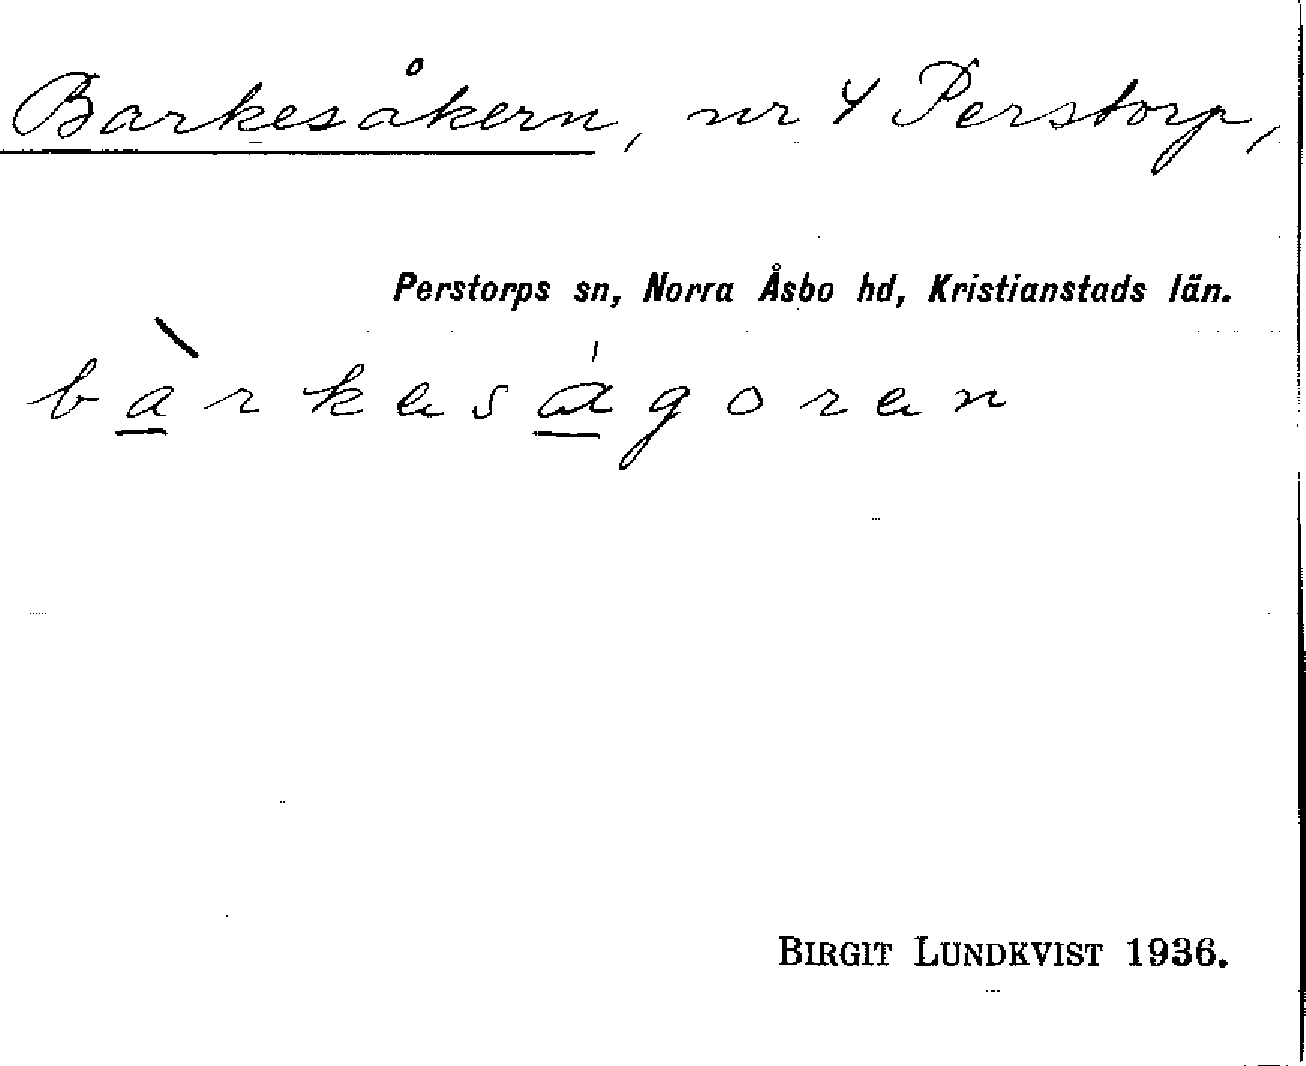 Barkesåkern, nr 4 Perstorp,
Perstorps sn, Norra Åsbo hd, Kristianstads län.
bàrkeságoren
BIRGIT LUNDKVIST 1936.